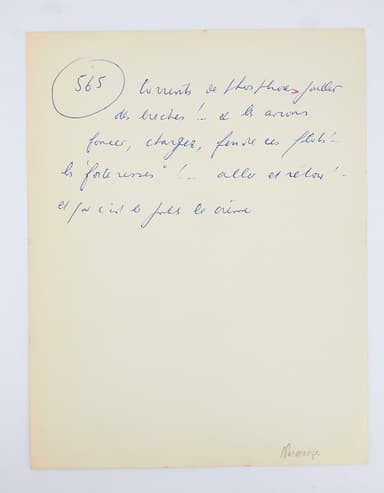 565
torrents de phosphore, juiller
des brèches !... et les avions
foncer, charger, fendre ces flots !...
les "forteresses" ! ... aller et retour ! ...
et que c'est le